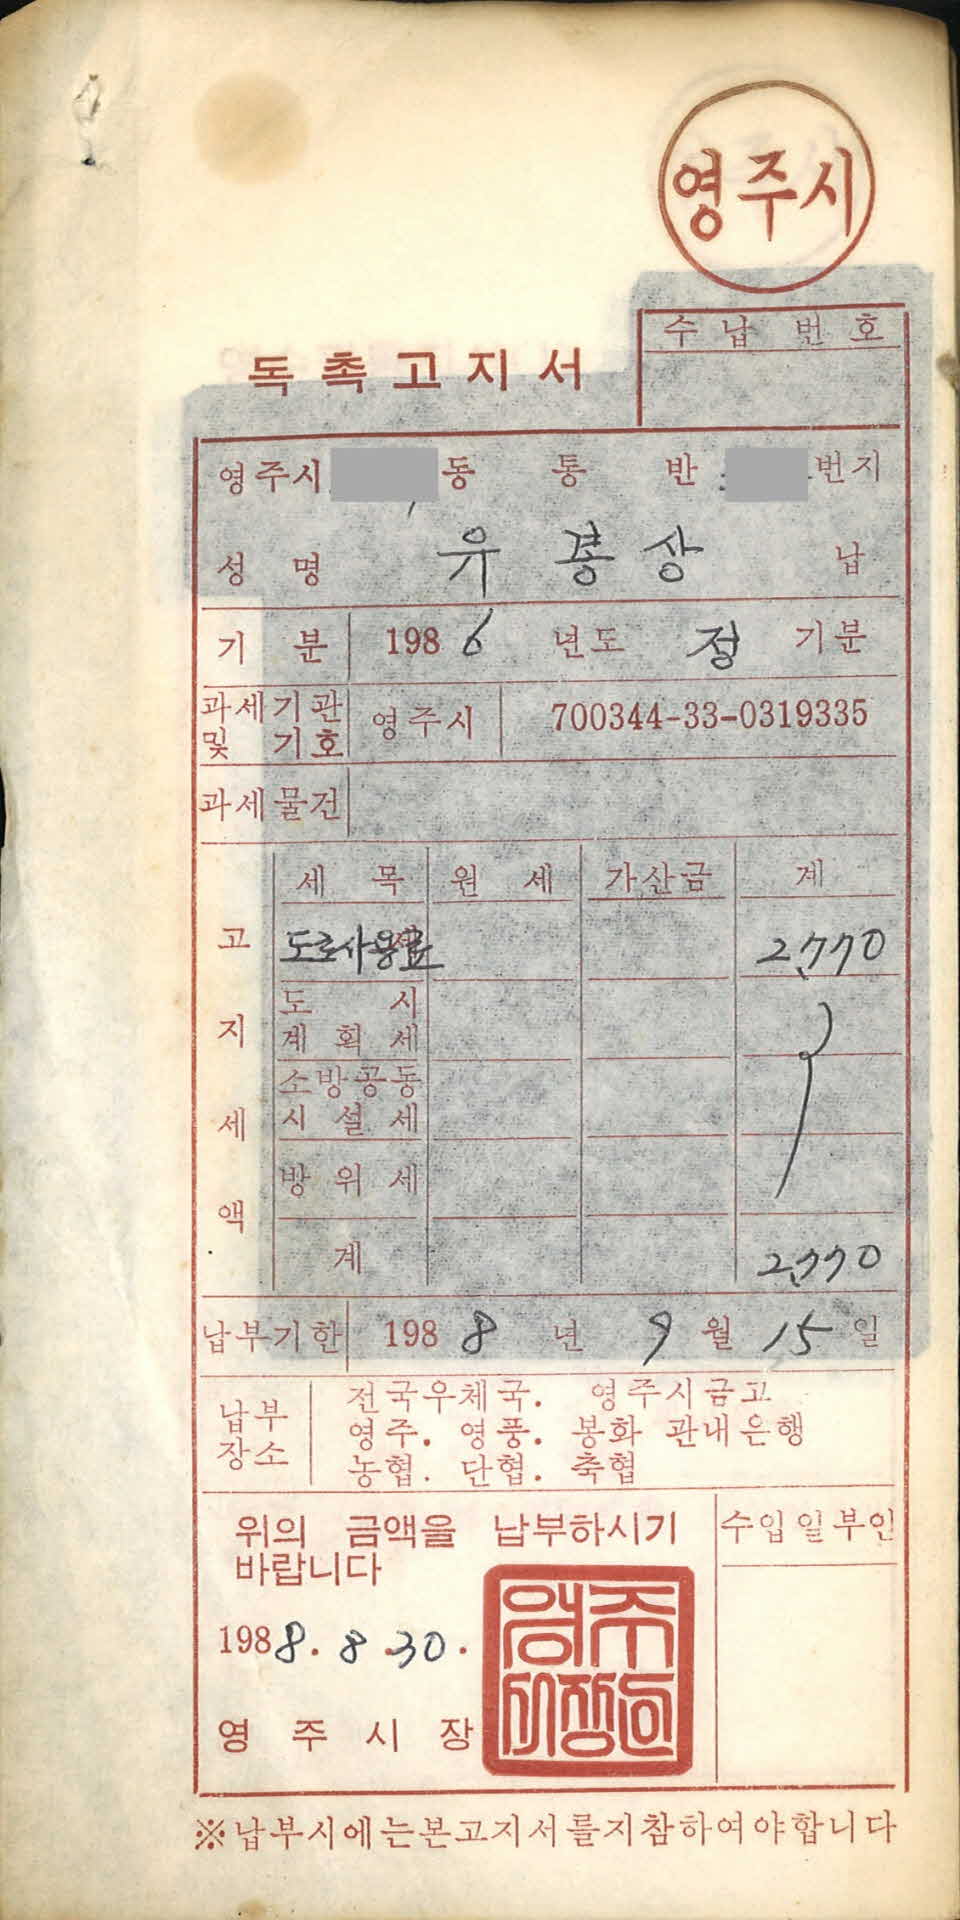 영주시
수납번호
독촉고지서
영주시 동 통 반 번지
성명 유 상 납
기분 1986년도 정기분
과세기관 및 기호 영주시 700344-33-0319335
과세물건
고지세액
세목 원세 가산금 계
도로사용료 2,770
도시계획세
소방공동시설세
방위세
계 2,770
납부기한 1988년 9월 15일
납부장소 전국우체국. 영주시금고
영주. 영풍. 봉화 관내은행
농협. 단협. 축협
위의 금액을 납부하시기
바랍니다
수입일부인
1988. 8. 30.
영주시장
영주시장인
※납부시에는본고지서를지참하여야합니다